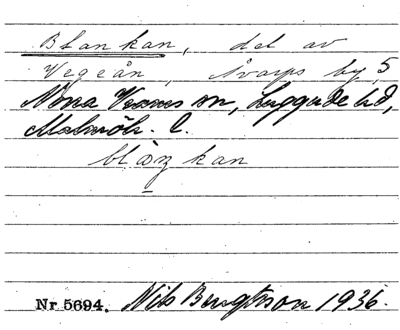 Blankan, del av
Vegeån, Åvarps by, 5
Norra Vrams sn, Luggude hd,
Malmöh. l.
blaŋkan
Nr. 5694. Nils Bengtsson 1936.